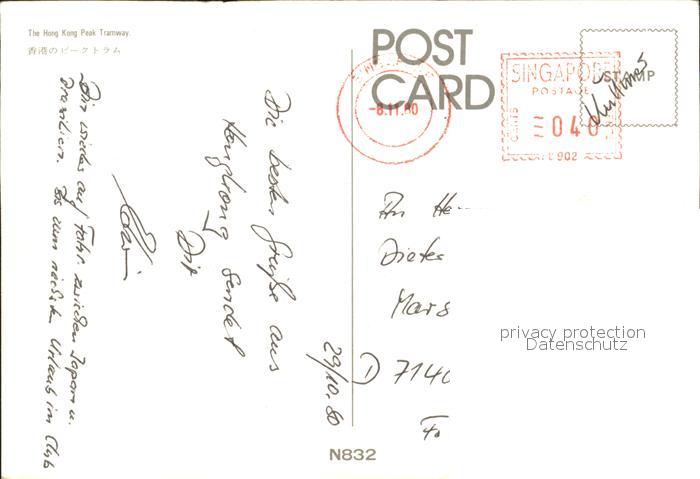 The Hong Kong Peak Tramway.
香港のピークトラム
POST
CARD
-8.11.80
SINGAPORE
POSTAGE
CENTS
040
902
STAMP
29/10.80
Die besten Grüße aus
Hongkong sendet
Dir
Bin wieder auf Fahrt zwischen Japan u.
Brasilien. Bis zum nächsten Urlaub im
An He
Dieter
Mars
D 714
privacy protection
Datenschutz
N832